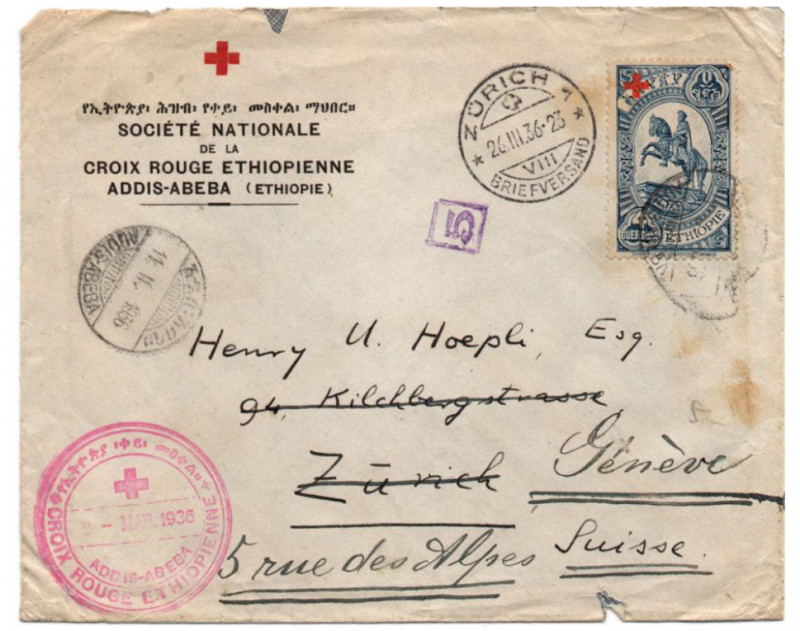 የኢትዮጵያ፡ ሕዝብ፡ የቀይ፡ መስቀል፡ ማህበር።
SOCIÉTÉ NATIONALE
DE LA
CROIX ROUGE ETHIOPIENNE
ADDIS-ABEBA (ETHIOPIE)
ZÜRICH 1
26.III.36-23
VIII
BRIEFVERSAND
ETHIOPIE
5
ADDIS-ABEBA
1936
Henry U. Hoepli, Esq.
94, Kilchbergstrasse
Zürich Genève
5 rue des Alpes Suisse.
የኢትዮጵያ ቀይ፡ መስቀል።
MAR. 1936
ADDIS-ABEBA
CROIX ROUGE ETHIOPIENNE